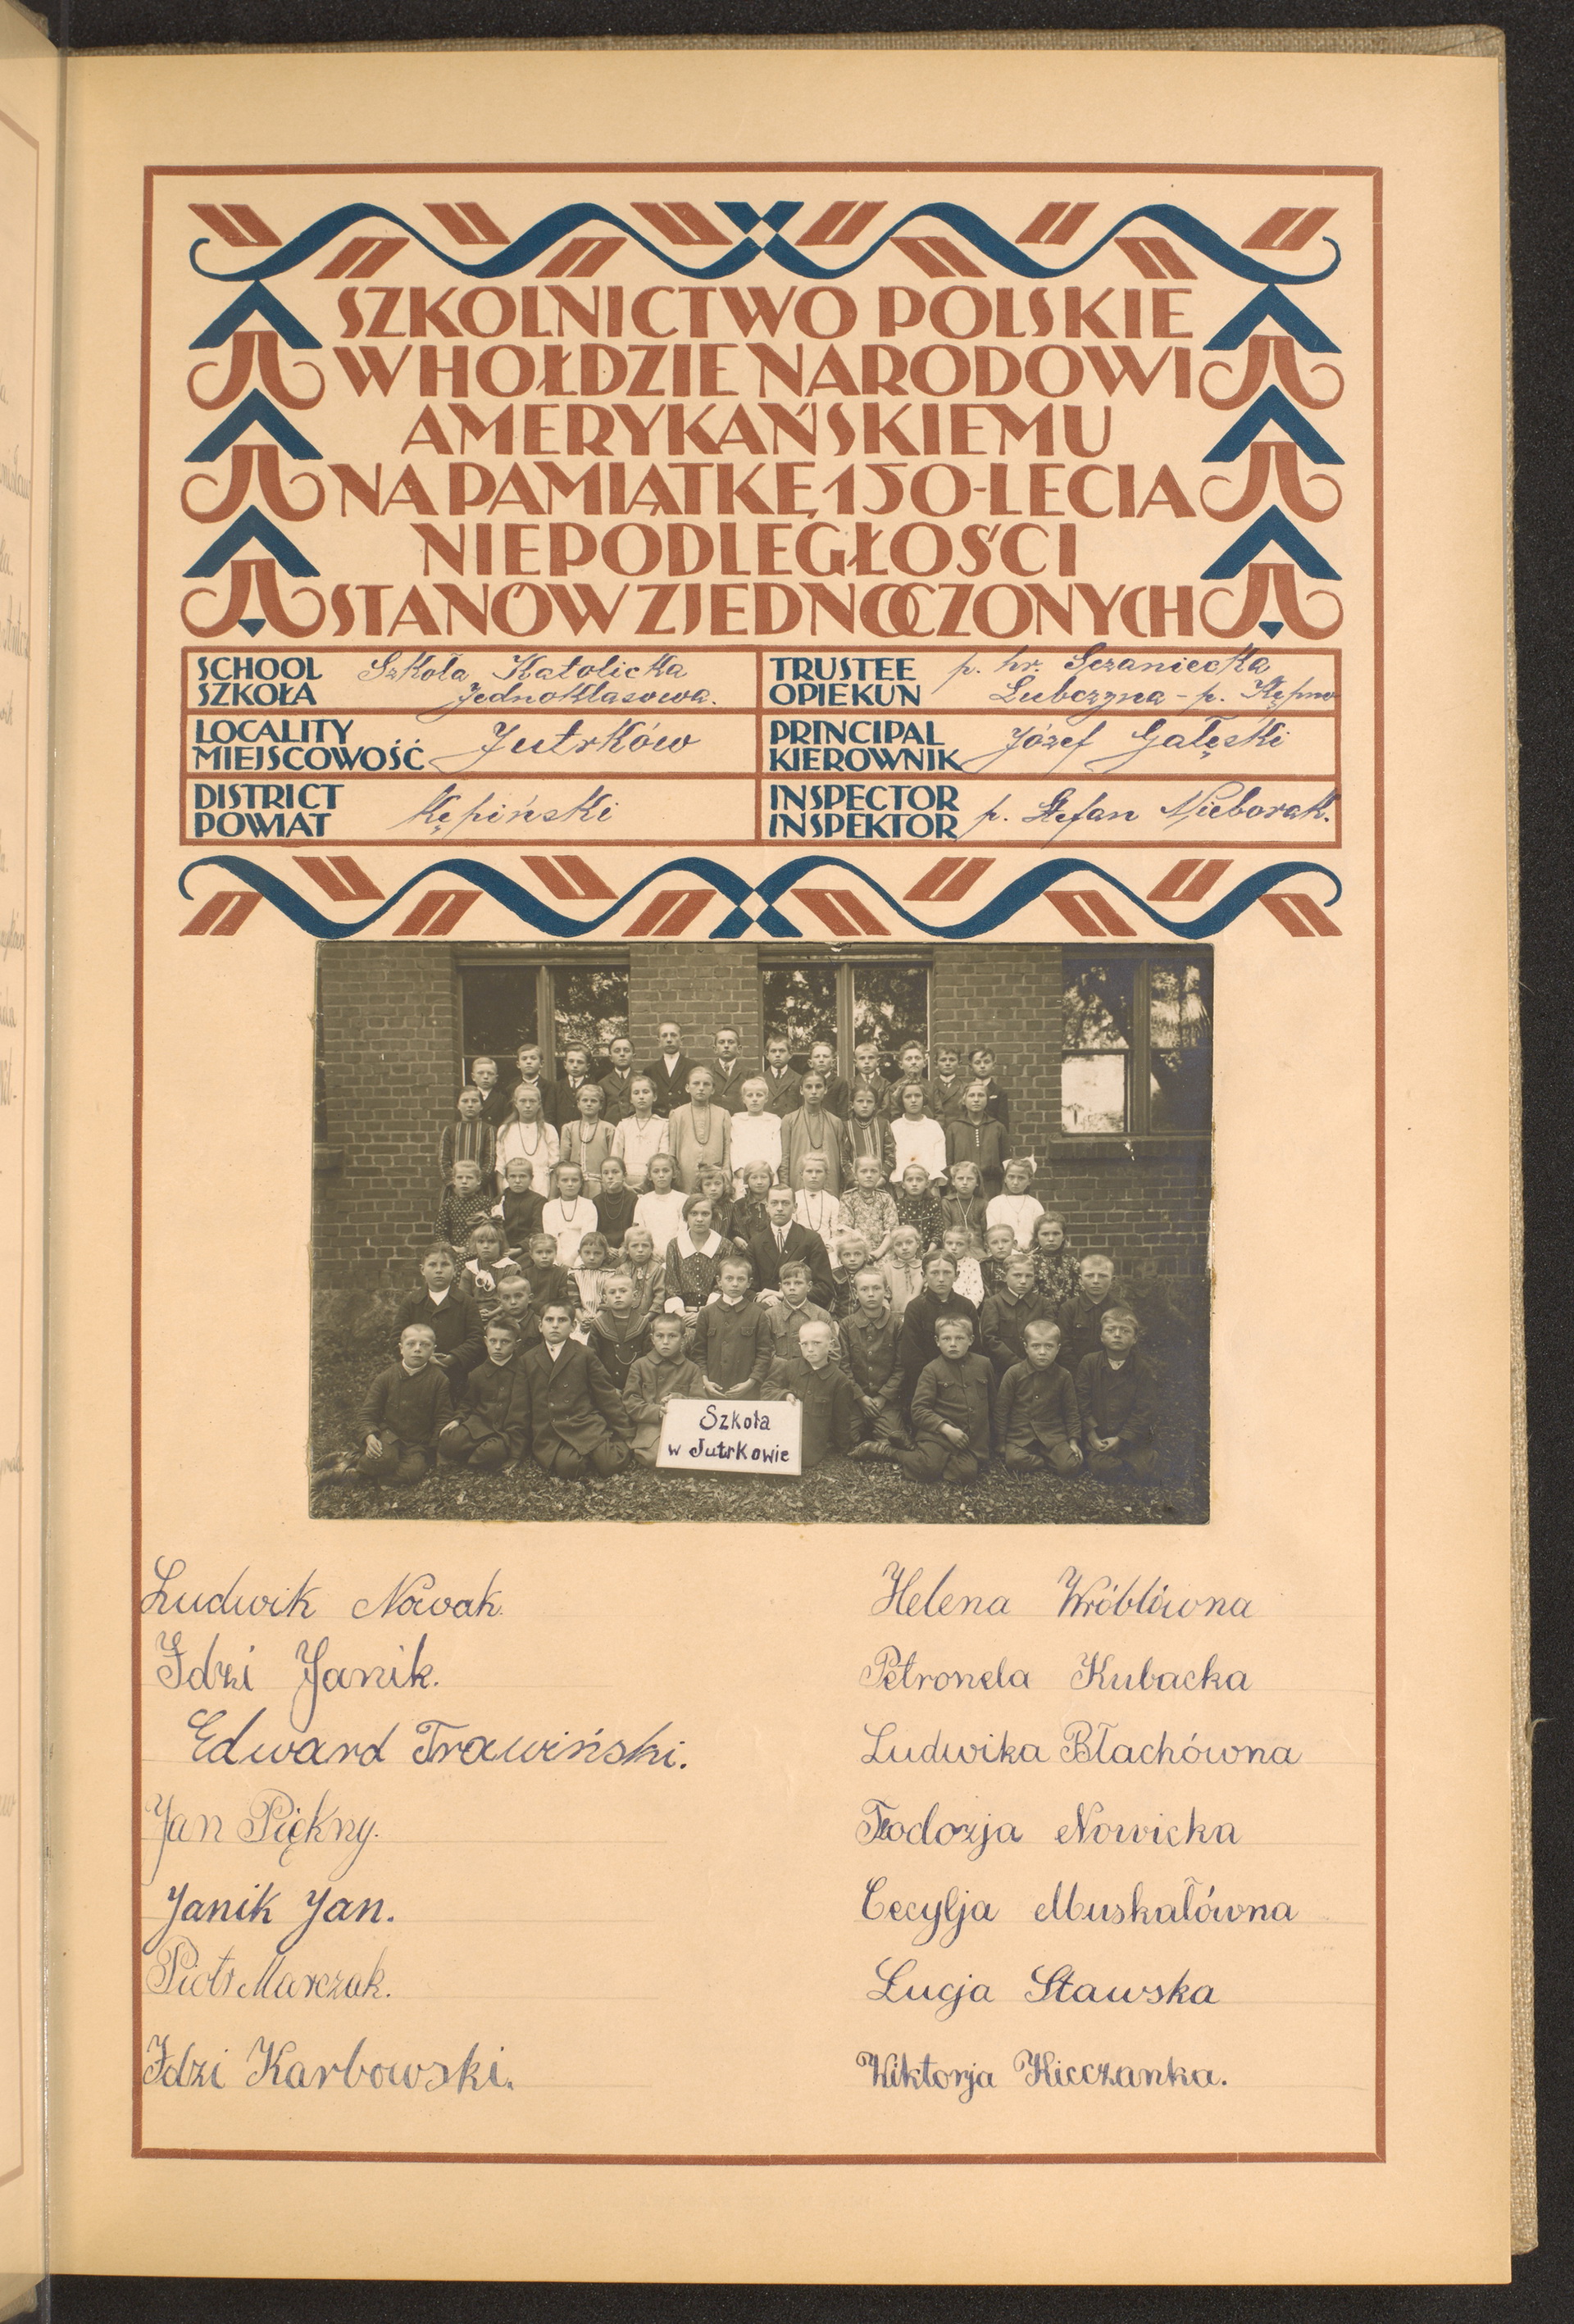 SZKOLNICTWO POLSKIE
W HOŁDZIE NARODOWI
AMERYKAŃSKIEMU
NA PAMIĄTKĘ 150-LECIA
NIEPODLEGŁOŚCI
STANÓW ZJEDNOCZONYCH
SCHOOL
SZKOŁA
Szkoła Katolicka
Jednoklasowa.
TRUSTEE
OPIEKUN
p. hr. Sczaniecka
Lubczyna - p. Kępno
LOCALITY
MIEJSCOWOŚĆ
Jutrków
PRINCIPAL
KIEROWNIK
Józef Gałęski
DISTRICT
POWIAT
Kępiński
INSPECTOR
INSPEKTOR
p. Stefan Nieborak.
Szkoła
w Jutrkowie
Ludwik Nowak.
Idzi Janik.
Edward Trawiński.
Jan Piękny.
Janik Jan.
Piotr Marczak.
Idzi Karbowski.
Helena Wróblówna
Petronela Kubacka
Ludwika Błachówna
Teodozja Nowicka
Cecylja Muskałówna
Łucja Stawska
Wiktorja Kicczanka.